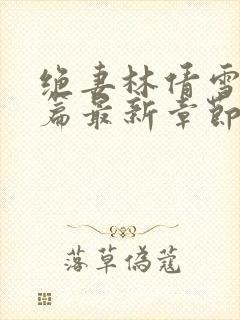 绝妻林倩雪
篇最新章節
落草偽蔻